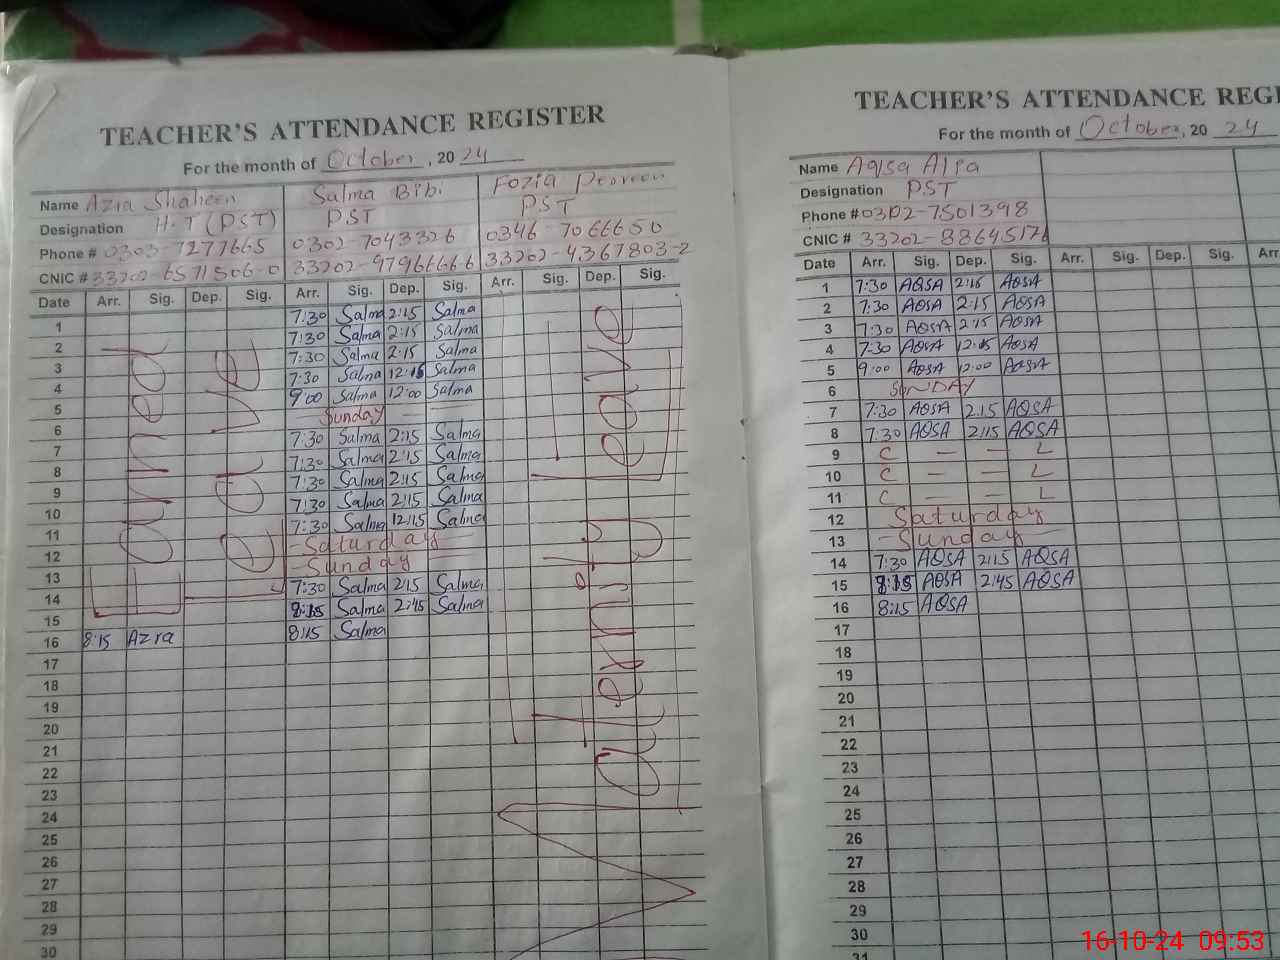 TEACHER'S ATTENDANCE REGISTER
For the month of October, 2024
Name Azra Shaheen Salma Bibi Fozia Perveen
Designation H.T (PST) PST PST
Phone # 0303-7277665 0302-7043326 0346-7066650
CNIC # 33202-6571506-0 33202-9796666-6 33202-4367803-2
Date Arr. Sig. Dep. Sig. Arr. Sig. Dep. Sig. Arr. Sig. Dep. Sig.
1 7:30 Salma 2:15 Salma
2 7:30 Salma 2:15 Salma
3 7:30 Salma 2:15 Salma
4 7:30 Salma 12:15 Salma
5 9:00 Salma 12:00 Salma
6 Sunday
7 7:30 Salma 2:15 Salma
8 7:30 Salma 2:15 Salma
9 7:30 Salma 2:15 Salma
10 7:30 Salma 2:15 Salma
11 7:30 Salma 12:15 Salma
12 - Saturday
13 - Sunday
14 7:30 Salma 2:15 Salma
15 8:15 Salma 2:45 Salma
16 8:15 Azra 8:15 Salma
17
18
19
20
21
22
23
24
25
26
27
28
29
30
Leave
Maternity Leave
TEACHER'S ATTENDANCE REGI
For the month of October, 2024
Name Aqsa Alia
Designation PST
Phone # 0302-7501398
CNIC # 33202-8864517
Date Arr. Sig. Dep. Sig. Arr. Sig. Dep. Sig. Arr
1 7:30 AQSA 2:15 AQSA
2 7:30 AQSA 2:15 AQSA
3 7:30 AQSA 2:15 AQSA
4 7:30 AQSA 12:15 AQSA
5 9:00 AQSA 12:00 AQSA
6 SUNDAY
7 7:30 AQSA 2:15 AQSA
8 7:30 AQSA 2:15 AQSA
9 C — — L
10 C — — L
11 C — — L
12 Saturday
13 - Sunday
14 7:30 AQSA 2:15 AQSA
15 8:15 AQSA 2:45 AQSA
16 8:15 AQSA
17
18
19
20
21
22
23
24
25
26
27
28
29
30
31
16-10-24 09:53